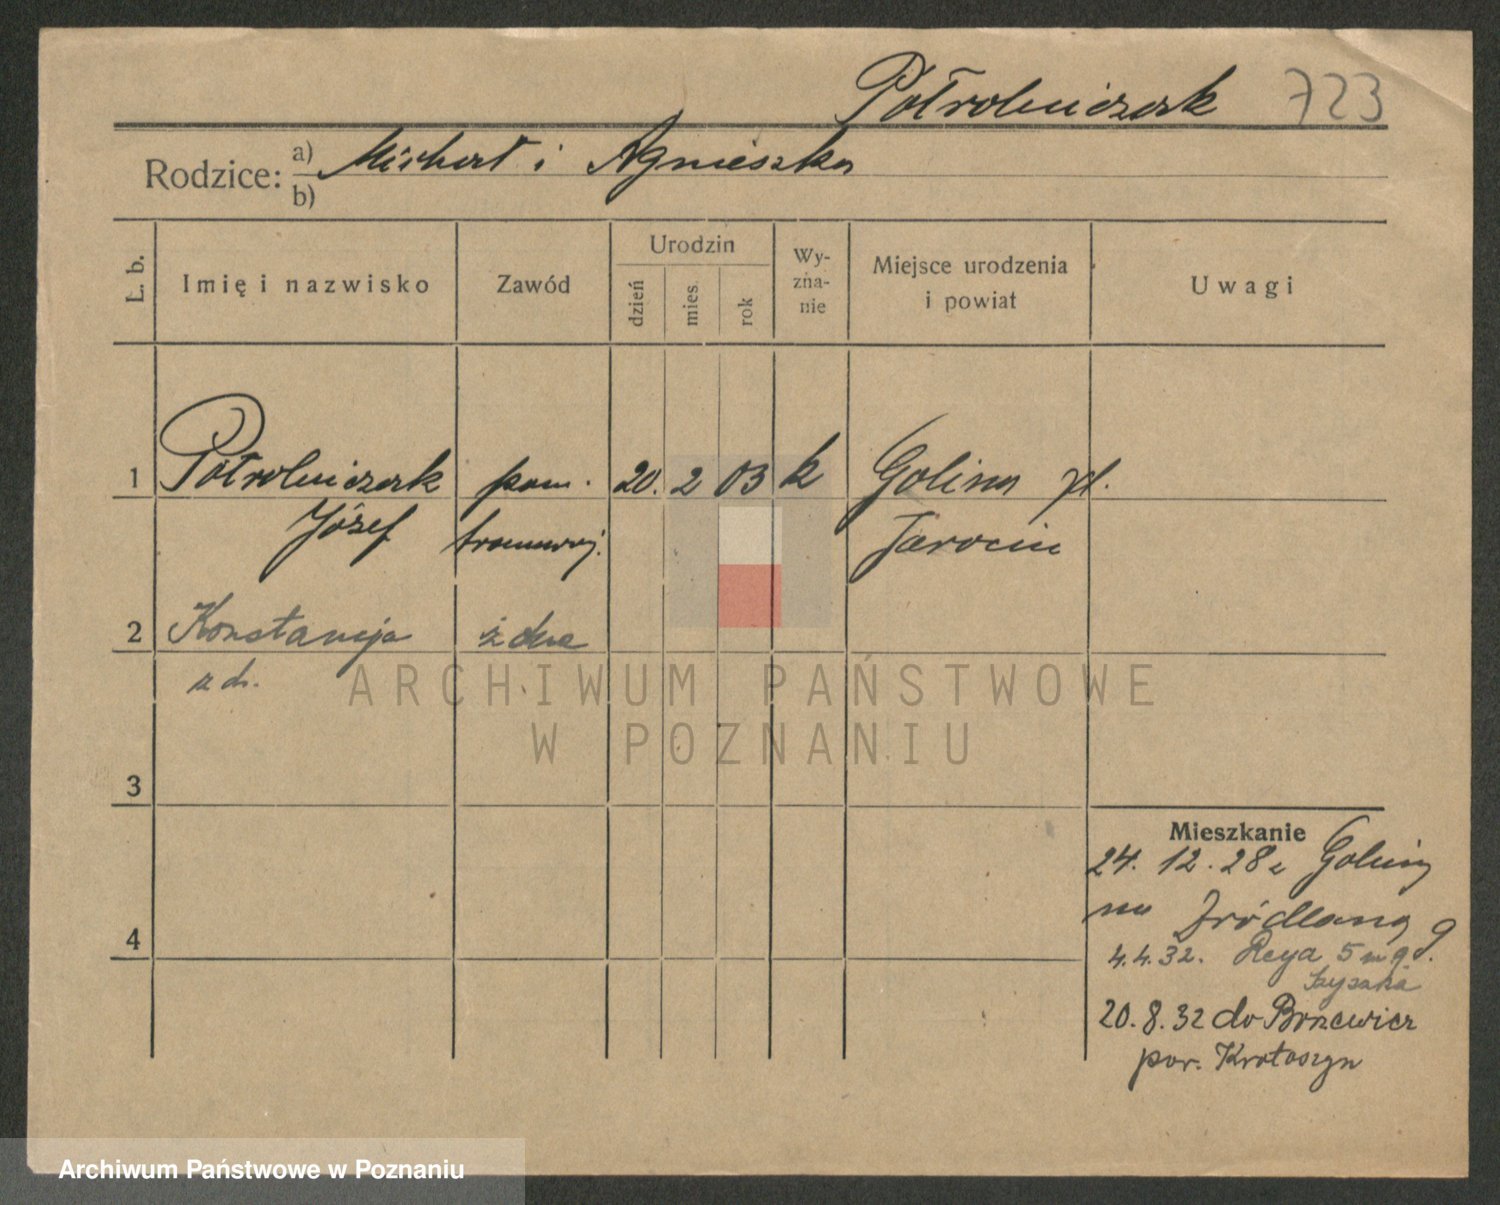 Półrolniczak 723
Rodzice: a) Michał i Agnieszka
b)
L. b.
Imię i nazwisko
Zawód
Urodzin
dzień
mies.
rok
Wy-
zna-
nie
Miejsce urodzenia
i powiat
Uwagi
1 Półrolniczak pom. 20. 2 03 k Golina pt.
Józef tramwaj. Jarocin
2 Konstancja
z d.
3
4
Mieszkanie
24. 12. 28 z Goliny
na Źródlaną 9
4.4.32. Reya 5 m 9.
20.8.32 do
pow. Krotoszyn
ARCHIWUM PAŃSTWOWE
W POZNANIU
Archiwum Państwowe w Poznaniu